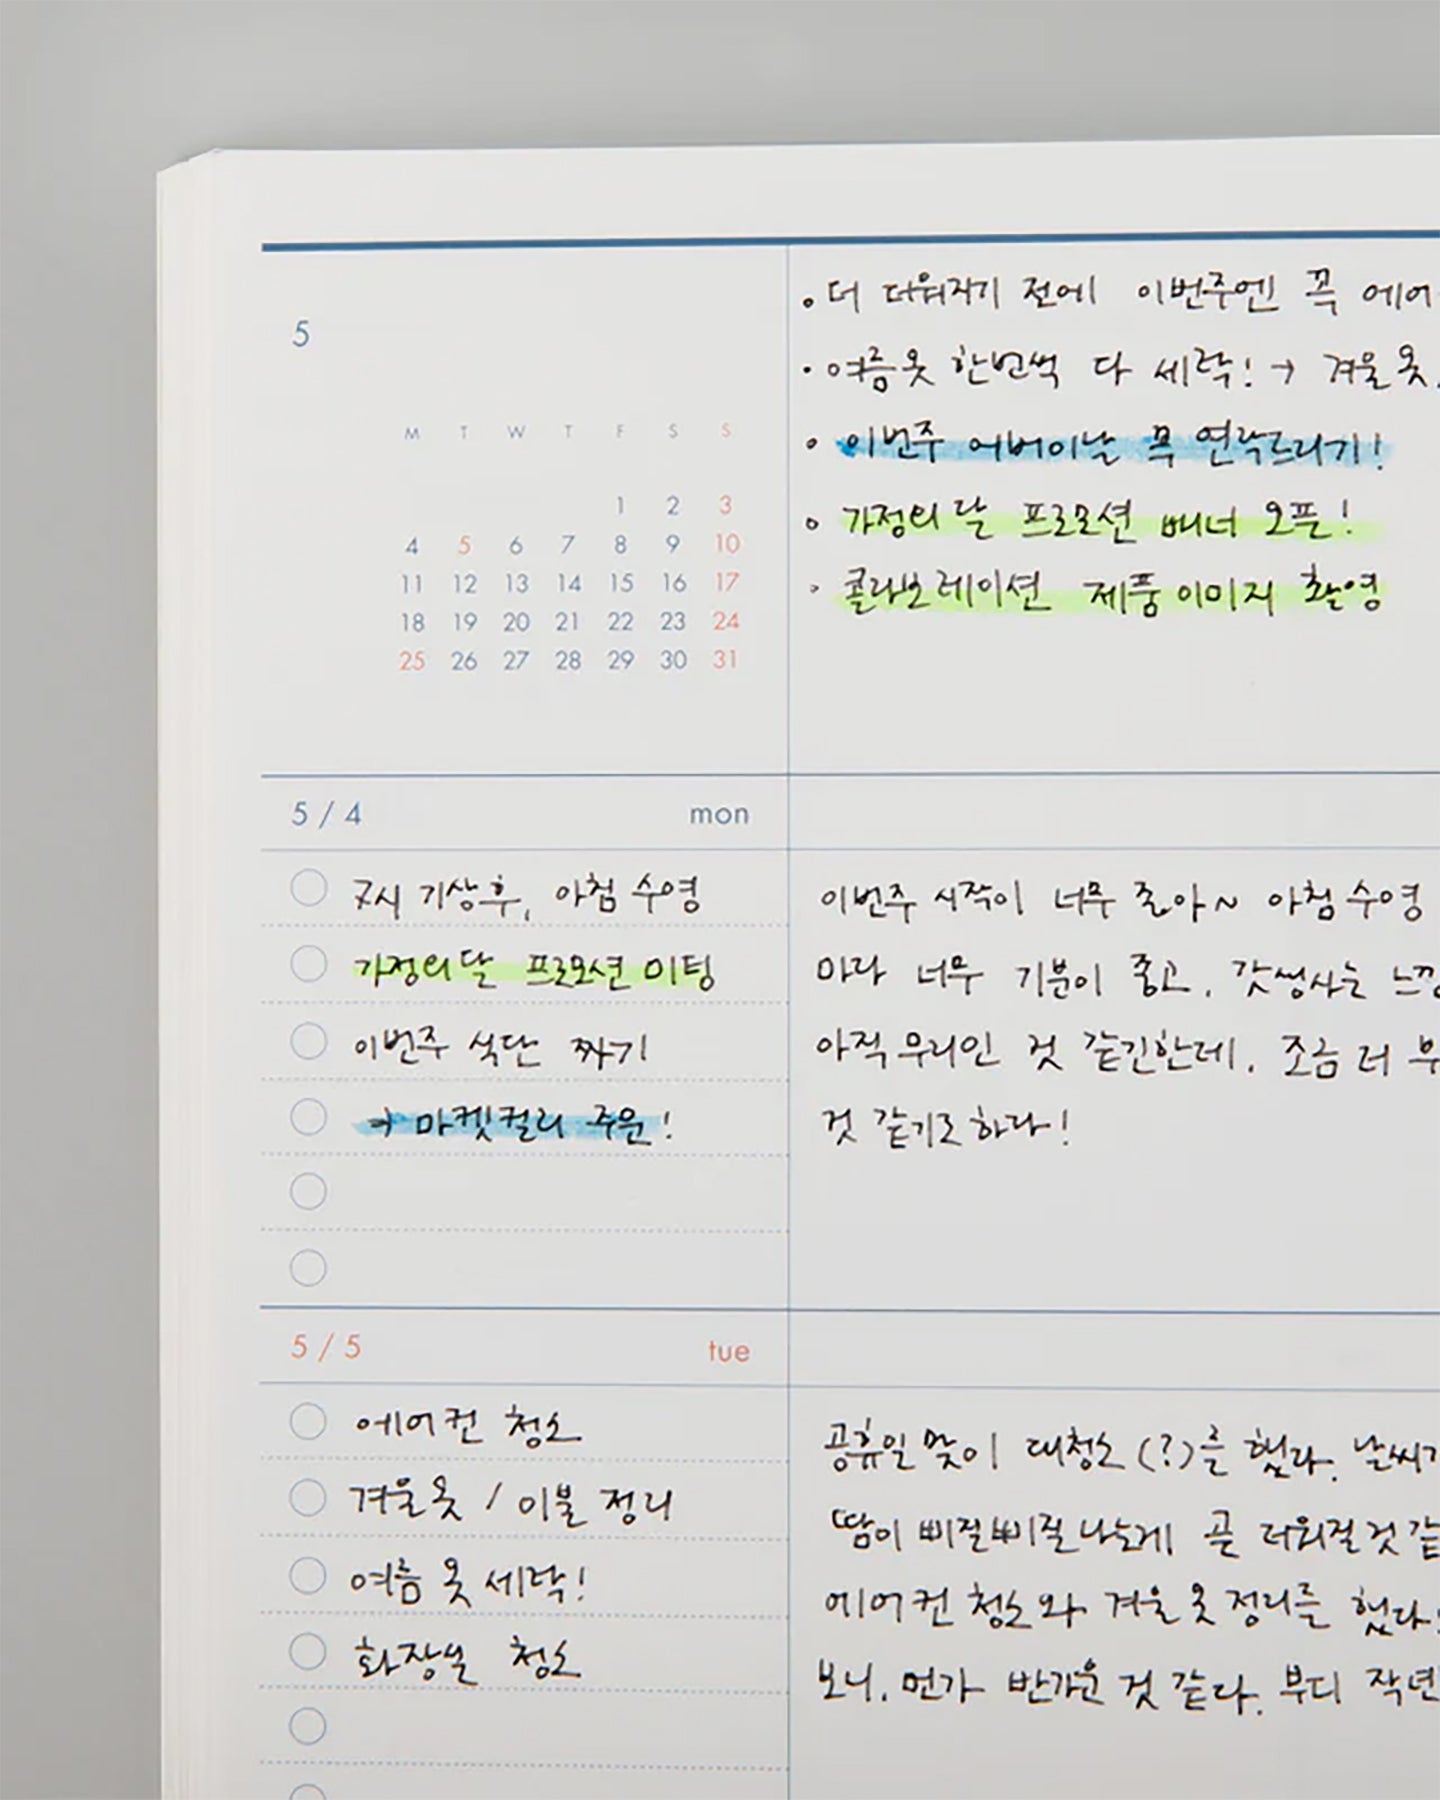 5
M T W T F S S
1 2 3
4 5 6 7 8 9 10
11 12 13 14 15 16 17
18 19 20 21 22 23 24
25 26 27 28 29 30 31
• 더 더워지기 전에 이번주엔 꼭 에어
• 여름옷 한번씩 다 세탁! → 겨울옷
• 이번주 어버이날 꼭 연락드리기!
• 가정의달 프로모션 배너 오픈!
• 콜라보레이션 제품이미지 촬영
5 / 4 mon
7시 기상후, 아침 수영
가정의달 프로모션 미팅
이번주 식단 짜기
→ 마켓컬리 주문!
이번주 시작이 너무 좋아~ 아침 수영
마다 너무 기분이 좋고, 갓생사는
아직 무리인 것 같긴한데, 조금 더
것 같기도하다!
5 / 5 tue
에어컨 청소
겨울옷 / 이불 정리
여름 옷 세탁!
화장실 청소
공휴일 맞이 대청소(?)를 했다. 날씨가
땀이 삐질삐질나는게 곧 더워질것 같
에어컨 청소와 겨울 옷 정리를 했다.
보니, 먼가 반가운 것 같다. 부디 작년